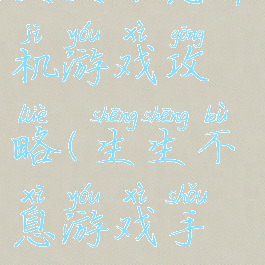 jī yóu xì gōng
机游戏攻
lüè shēng shēng bù
略(生生不
xī yóu xì shǒu
息游戏手